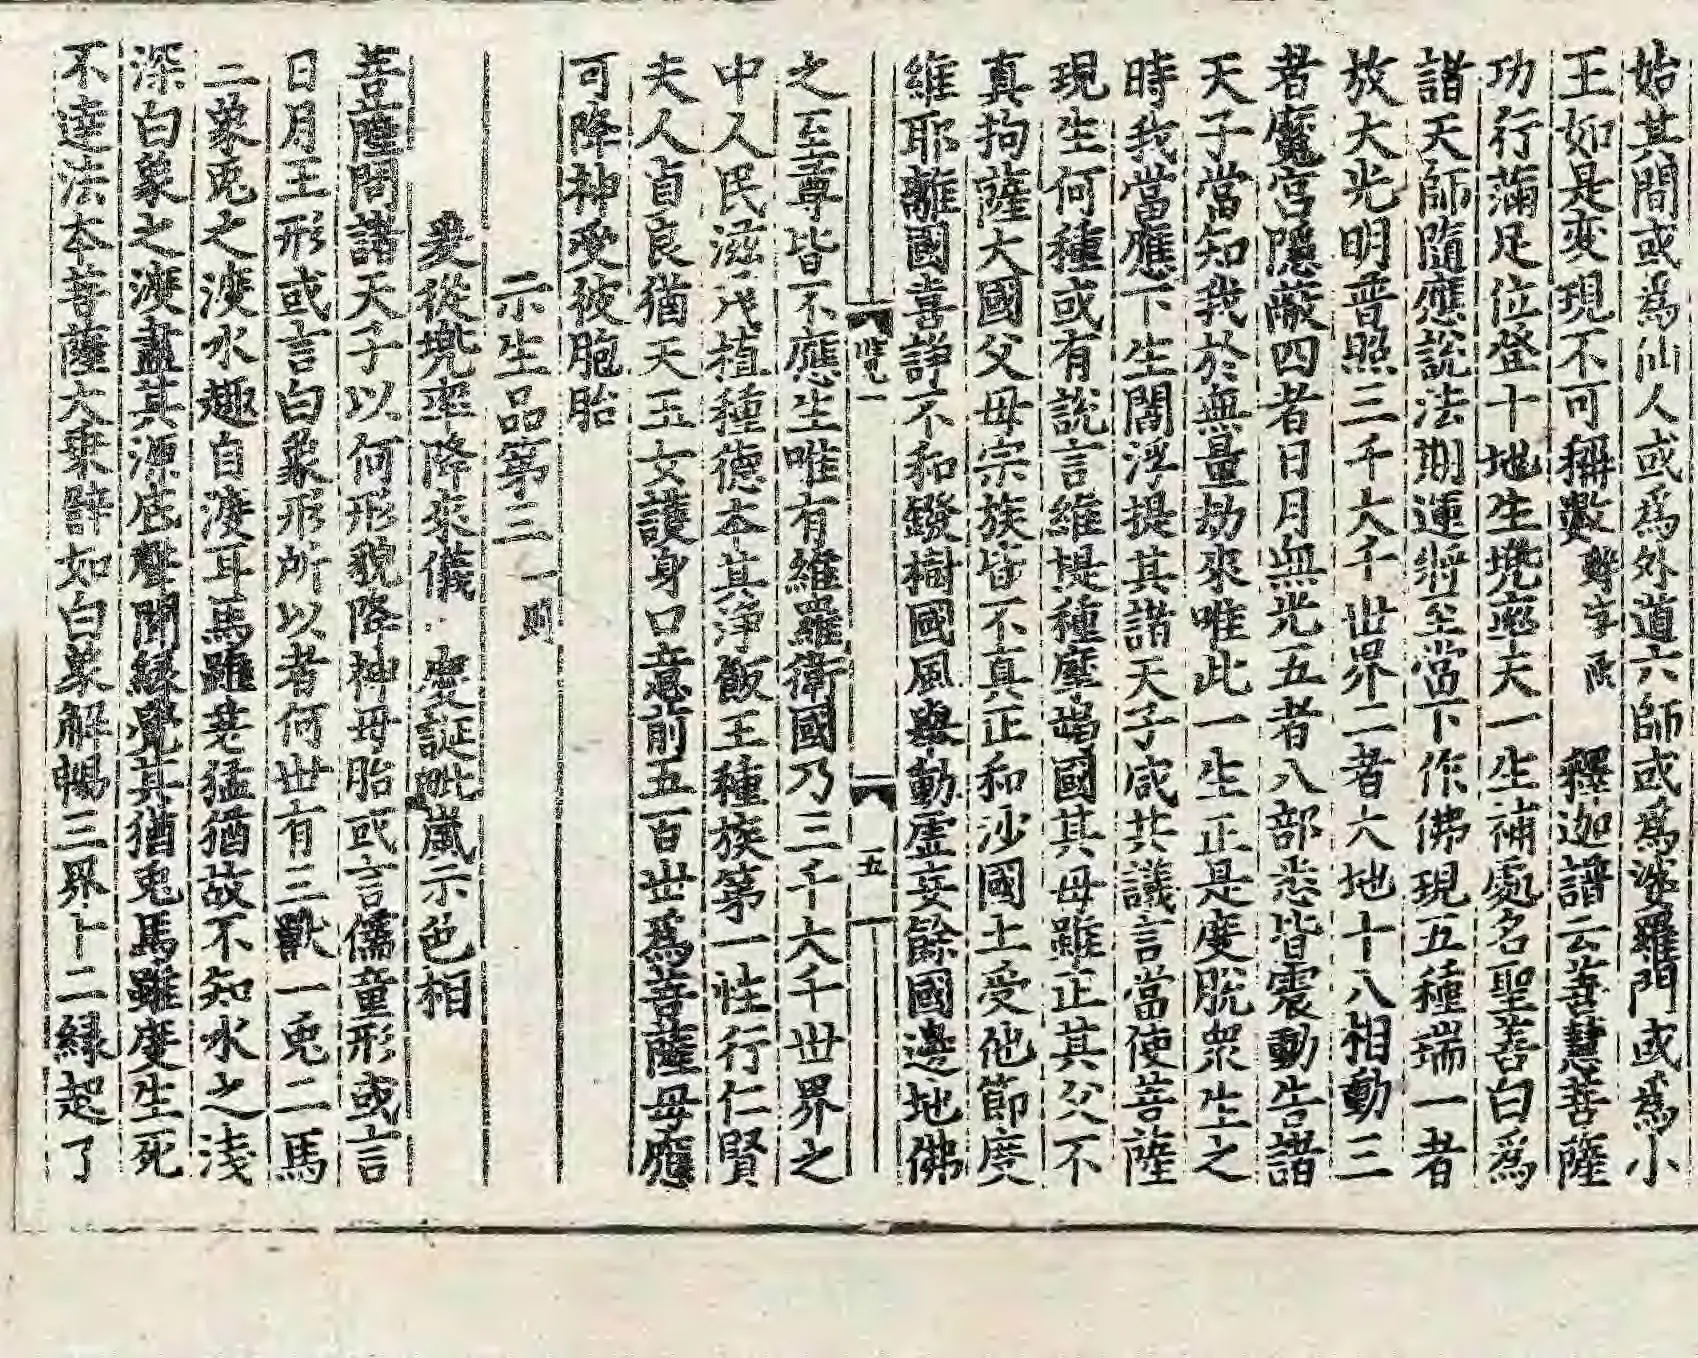 始其間或為仙人或為外道六師或為婆羅門或為小
王如是变現不可稱數 釋迦譜云善慧菩薩
功行滿足位登十地生兜率天一生補處名聖善白為
諸天師隨應說法期運將至當下作佛現五種瑞一者
放大光明普照三千大千世界二者六地十八相動三
者魔宮隱蔽四者日月無光五者八部悉皆震動告諸
天子當知我於無量劫來唯此一生正是度脫眾生之
時我當應下生閻浮提其諸天子咸共議言當使菩薩
現生何種或有說言維提種摩竭國其母雖正其父不
真拘薩大國父母宗族皆不真正和沙國土受他節度
維耶離國喜諍不和鏺樹國風舉動虛妄餘國邊地佛
覽一 五
之至尊皆不應生唯有維羅衛國乃三千大千世界之
中人民滋茂植種德本其淨飯王種族第一性行仁賢
夫人貞良猶天玉女護身口意前五百世為菩薩母應
可降神受彼胞胎
示生品第三 一則
爰從兜率降來儀 慶誕毗嵐示色相
菩薩問諸天子以何形貌降神母胎或言儒童形或言
日月王形或言白象形所以者何世有三獸一兎二馬
二象兎之渡水趣自渡耳馬雖差猛猶故不知水之淺
深白象之渡盡其源底聲聞緣覺其猶兎馬雖度生死
不達法本菩薩大乘譬如白象解暢三界十二緣起了